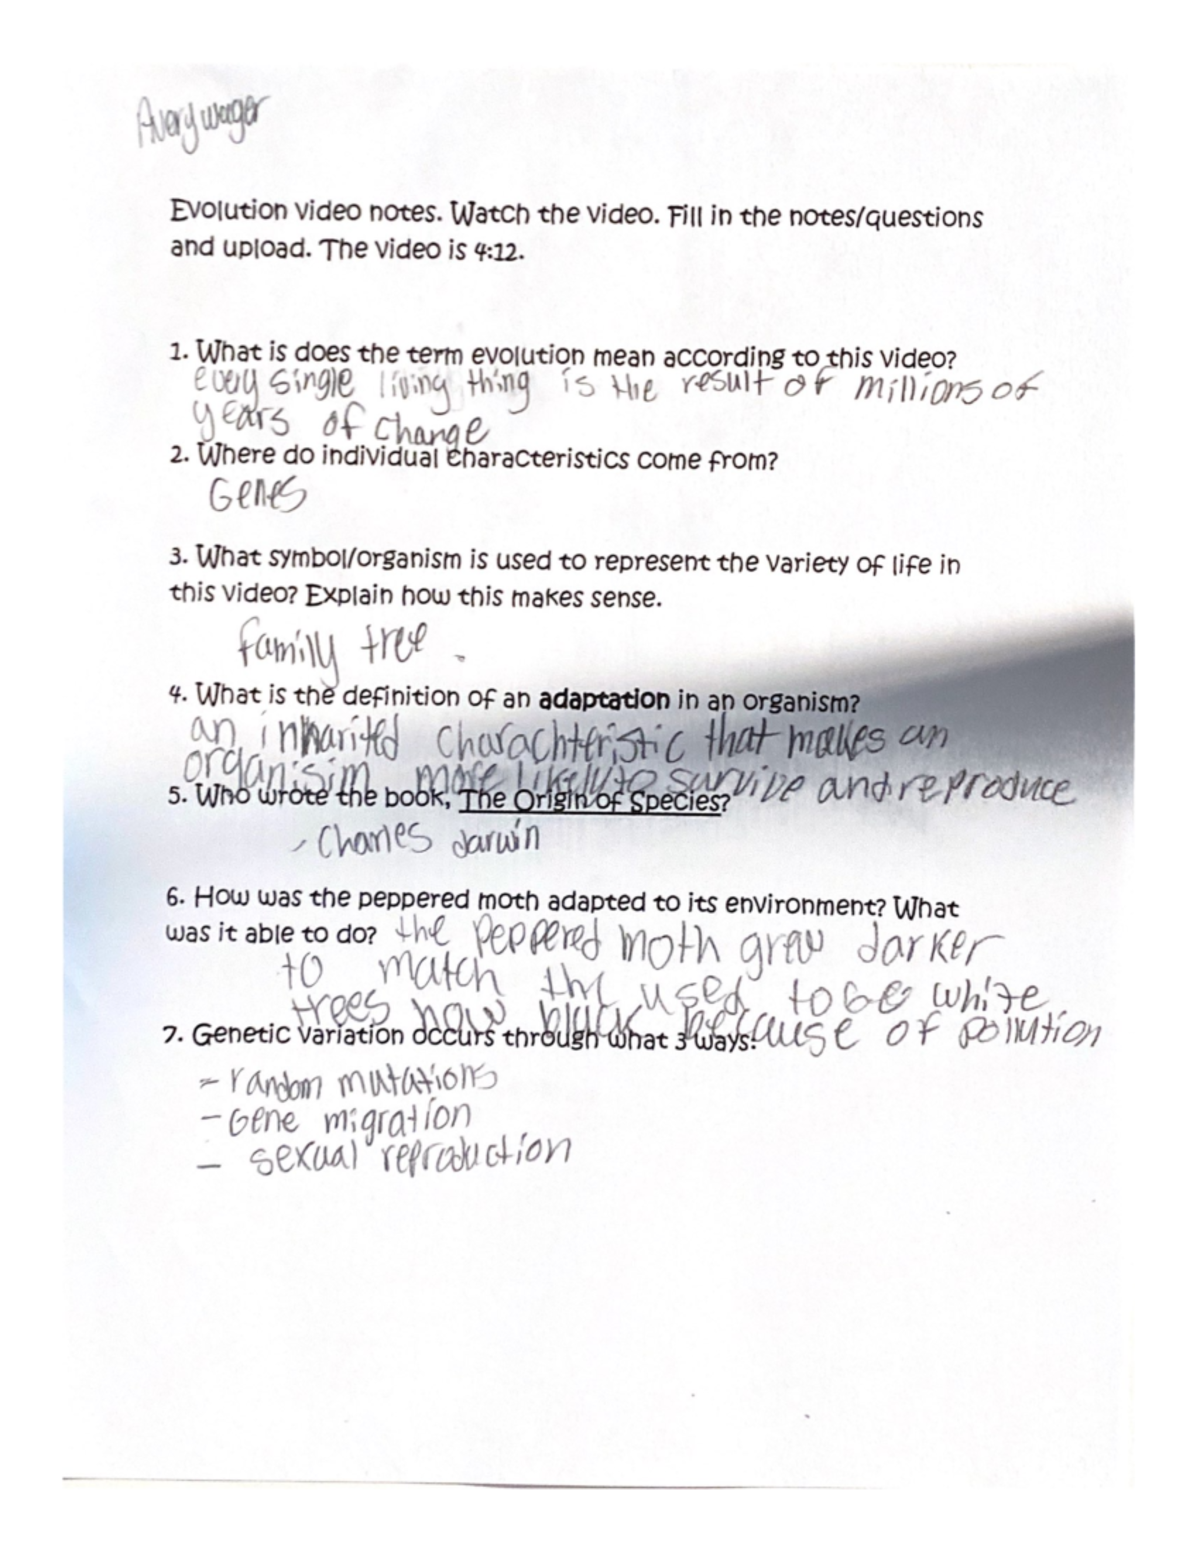 Avery wager
Evolution video notes. Watch the video. Fill in the notes/questions
and upload. The video is 4:12.
1. What is does the term evolution mean according to this video?
every single living thing is the result of millions of
years of change
2. Where do individual characteristics come from?
Genes
3. What symbol/organism is used to represent the variety of life in
this video? Explain how this makes sense.
family tree.
4. What is the definition of an adaptation in an organism?
an inharited charachteristic that makes an
organisim more likely to survive and reproduce
5. Who wrote the book, The Origin of Species?
- Charles darwin
6. How was the peppered moth adapted to its environment? What
was it able to do? the peppered moth grew darker
to match the used to be white
trees now black because of pollution
7. Genetic variation occurs through what 3 ways?
- random mutations
- Gene migration
- sexual reproduction